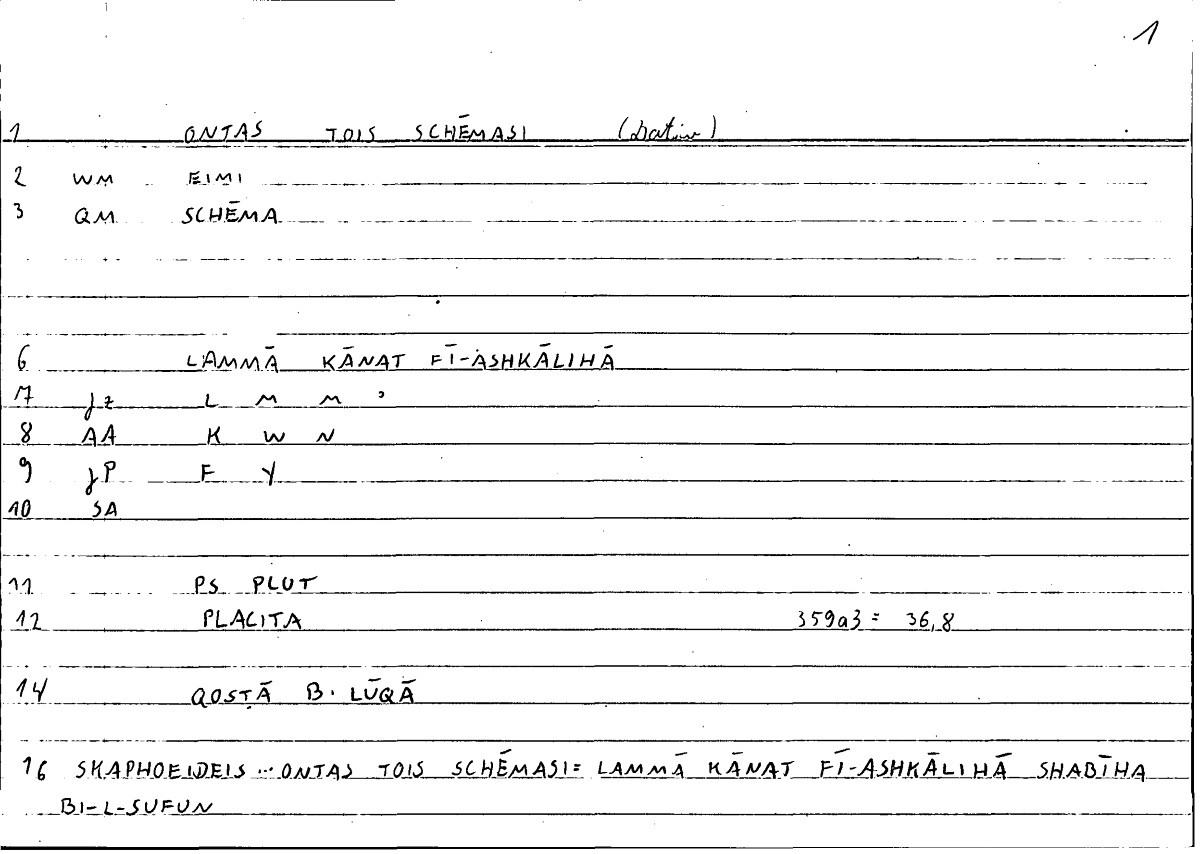 1
1 ONTAS TOIS SCHĒMASI (Dativ)
2 WM EIMI
3 QM SCHĒMA
6 LAMMĀ KĀNAT FĪ-ASHKĀLIHĀ
7 jz L M M ʾ
8 AA K W N
9 jP F Y
10 SA
11 PS PLUT
12 PLACITA 359a3 = 36,8
14 QOSṬĀ B. LŪQĀ
16 SKAPHOEIDEIS ... ONTAS TOIS SCHĒMASI = LAMMĀ KĀNAT FĪ-ASHKĀLIHĀ SHABĪHA
BI-L-SUFUN